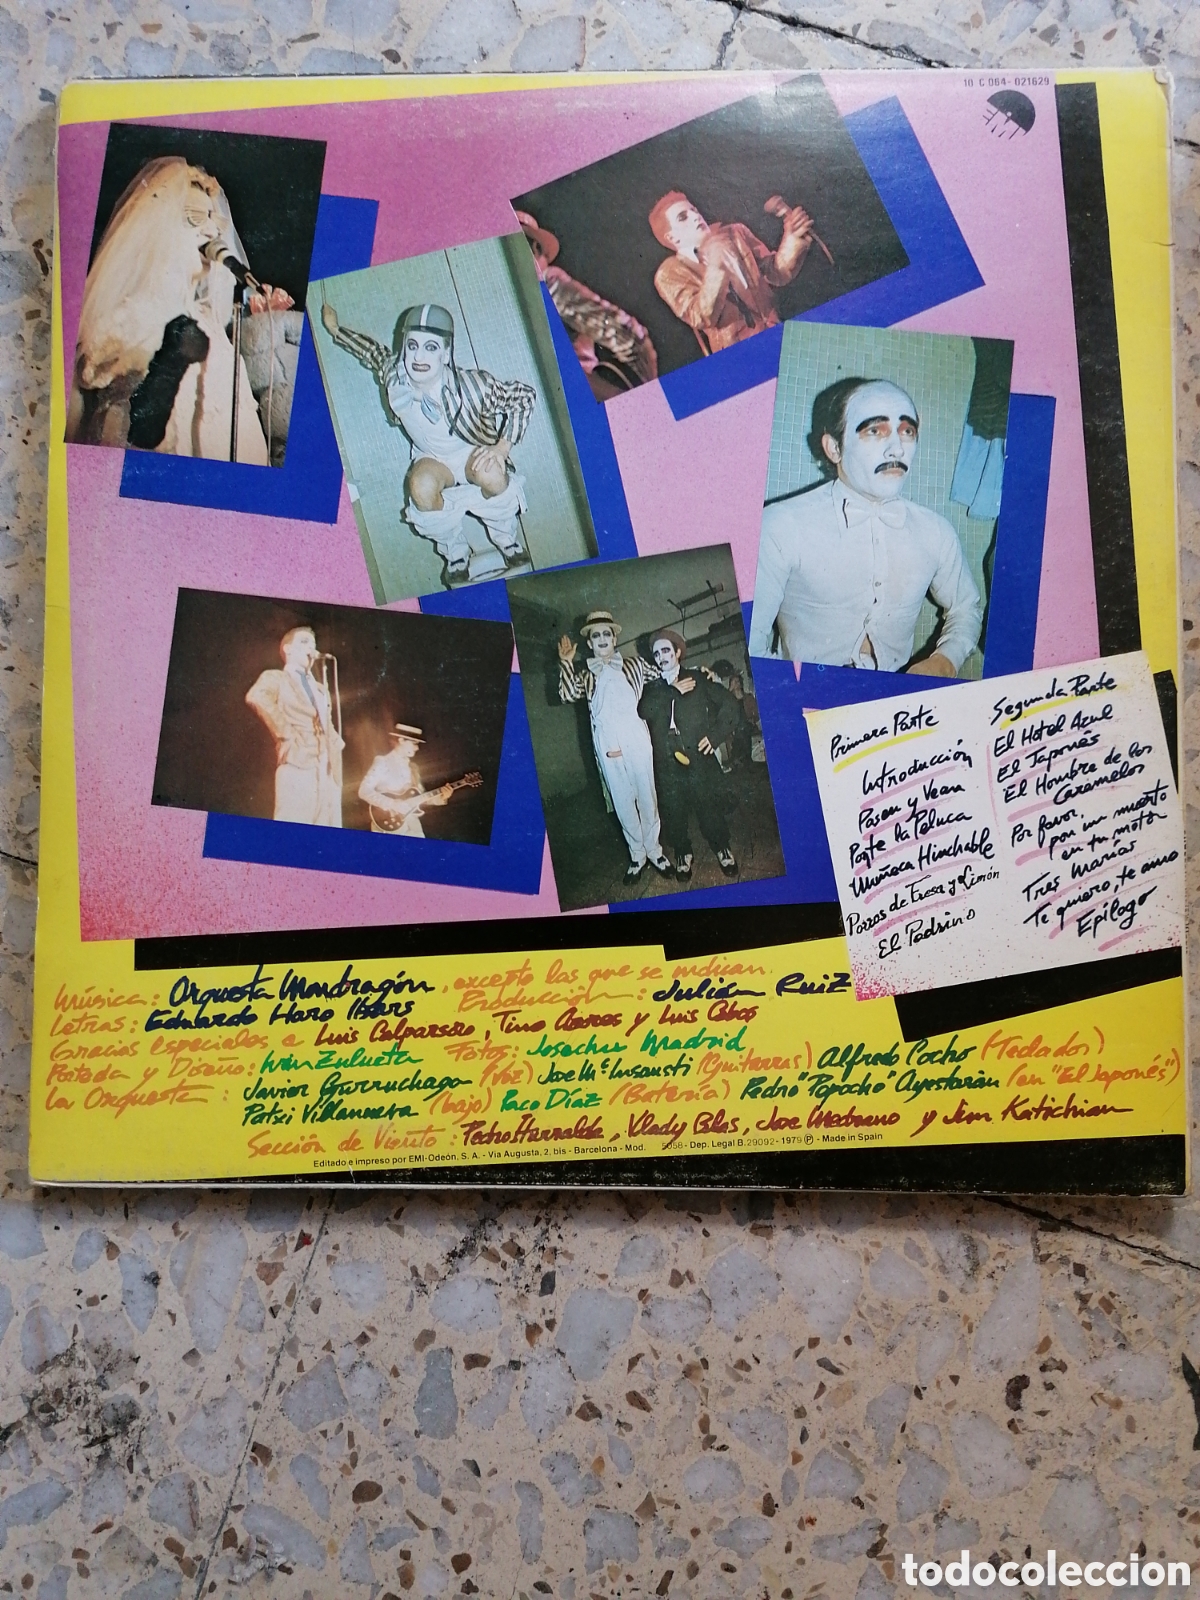 10 C 064-021629
Primera Parte
Introducción
Pasen y Vean
Ponte la Peluca
Muñeca Hinchable
Porros de Fresa y Limón
El Padrino
Segunda Parte
El Hotel Azul
El Japonés
El Hombre de los
Caramelos
Por favor,
pon un muerto
en tu motor
Tres Marías
Te quiero, te amo
Epílogo
Música: Orquesta Mondragón, excepto las que se indican.
Letras: Eduardo Haro Ibars Producción: Julián Ruiz
Gracias especiales a Luis Calparsoro, Tino Azores y Luis Cobos
Portada y Diseño: Iván Zulueta Fotos: Josechu Madrid
La Orquesta: Javier Gurruchaga (Voz) Jose Mª Insausti (Guitarras) Alfredo Cocho (Teclados)
Patxi Villanueva (bajo) Paco Díaz (Batería) Pedro "Popocho" Ayestarán (en "El Japonés")
Sección de Viento: Pedro Iturralde, Vlady Blas, Jose Medrano y Jim Katichian
Editado e impreso por EMI-Odeón, S. A. - Via Augusta, 2, bis - Barcelona - Mod. 5058 - Dep. Legal B. 29092 - 1979 Ⓟ - Made in Spain
todocoleccion